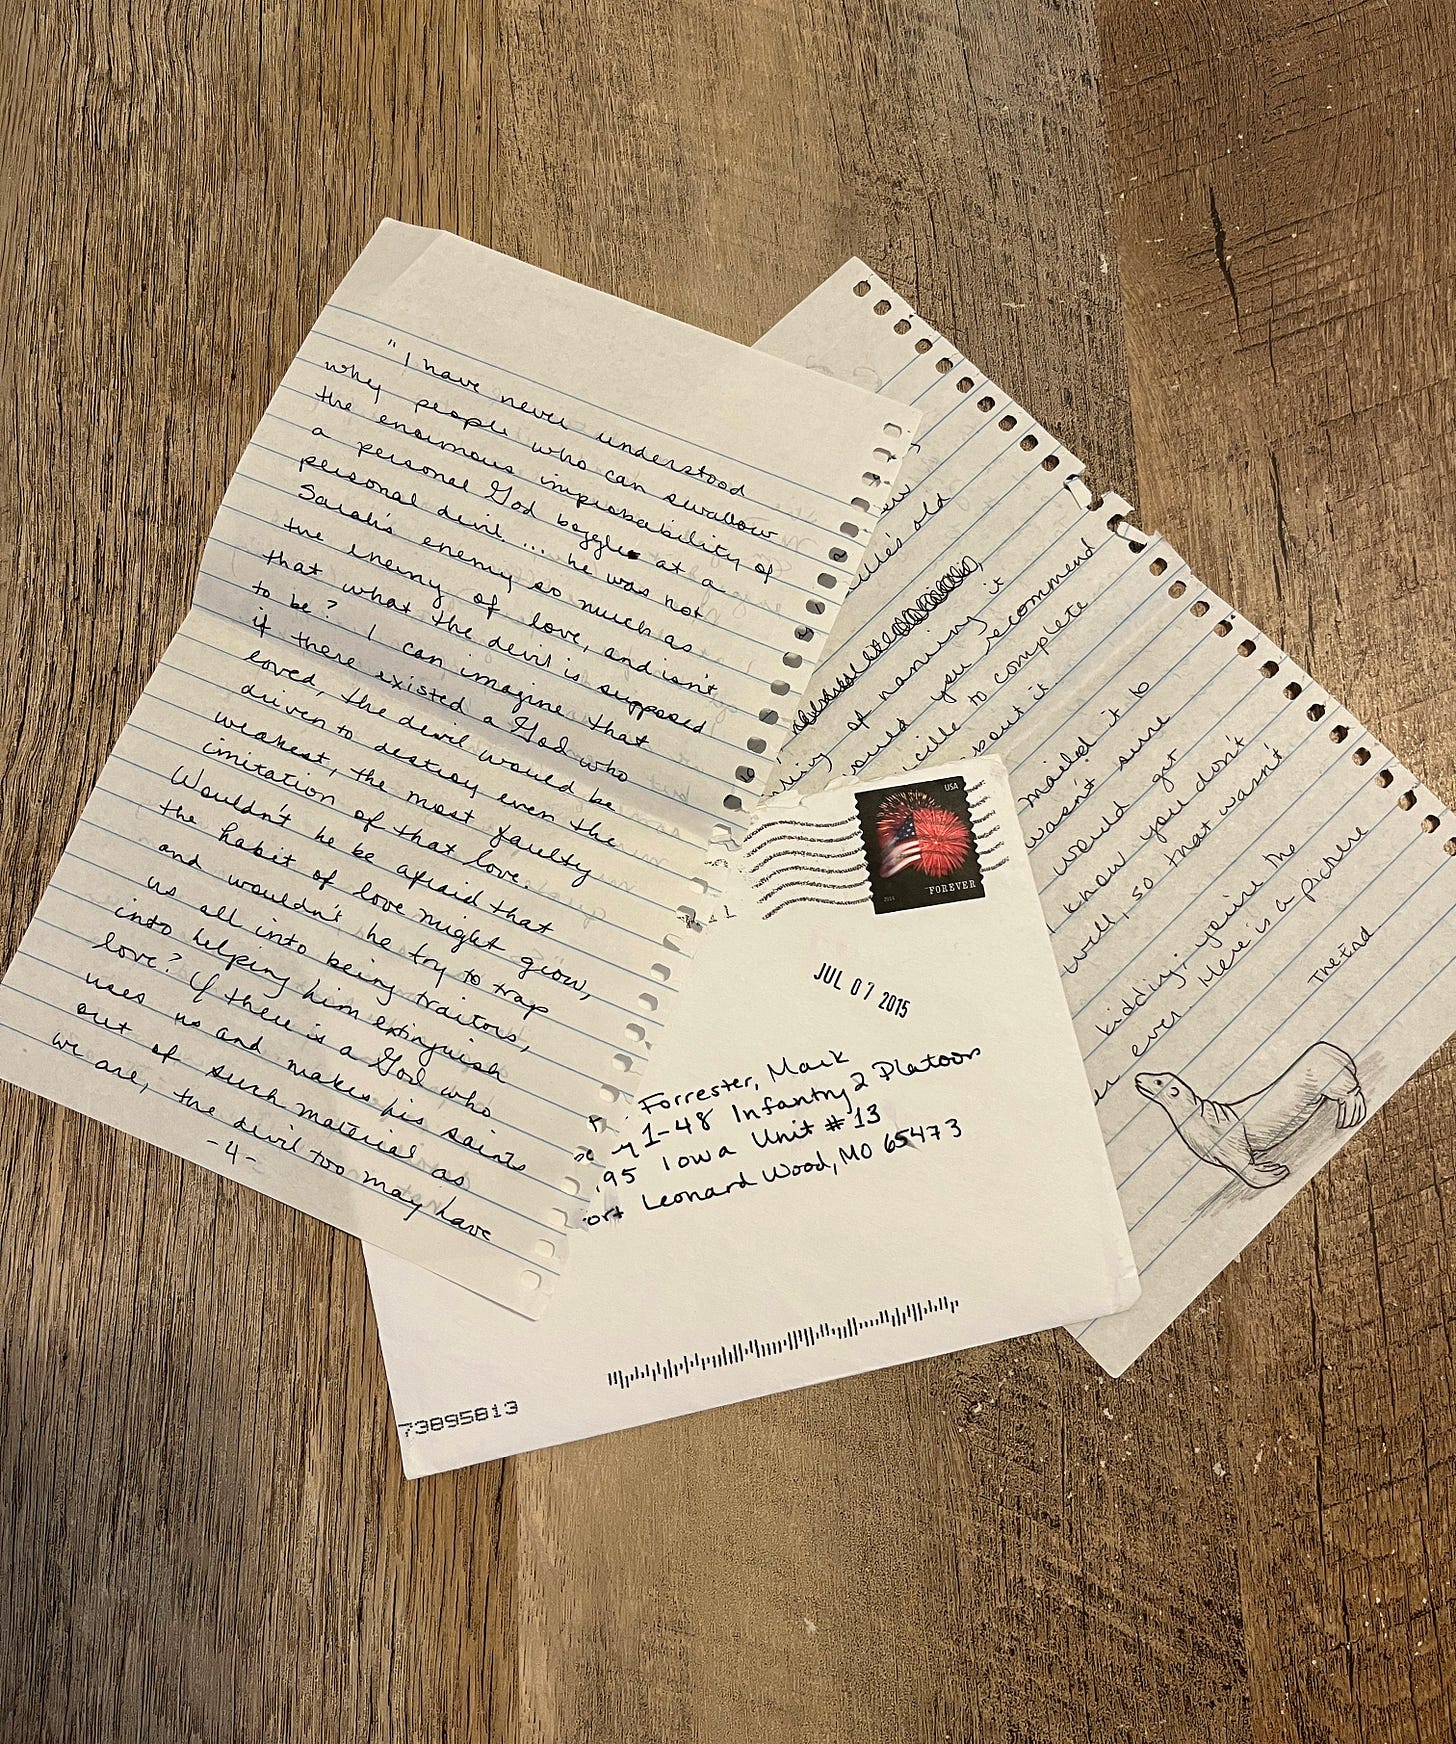 "I have never understood
why people who can swallow
the enormous improbability of
a personal God boggle at a
personal devil ... he was not
Sarah's enemy so much as
the enemy of love, and isn't
that what the devil is supposed
to be? I can imagine that
if there existed a God who
loved, the devil would be
driven to destroy even the
weakest, the most faulty
imitation of that love.
Wouldn't he be afraid that
the habit of love might grow,
and wouldn't he try to trap
us all into being traitors,
into helping him extinguish
love? If there is a God who
uses us and makes his saints
out of such material as
we are, the devil too may have
-4-
old
of naming it
would you recommend
to complete
about it.
mailed it to
wasn't sure
would get
I know you don't
will, so that wasn't
kidding, you're the
ever Here is a picture
The End
USA
FOREVER
2014
JUL 07 2015
Forrester, Mark
1-48 Infantry 2 Platoon
95 Iowa Unit #13
ort Leonard Wood, MO 65473
73895813